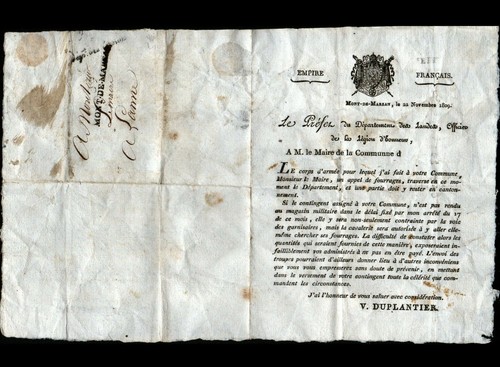 A Monsieur
MONT-DE-MARSAN
Lanne
EMPIRE FRANÇAIS.
MONT-DE-MARSAN, le 22 Novembre 1809.
Le Préfet du Département des Landes, Officier
de la Légion d'honneur,
A M. le Maire de la Commune d
LE corps d'armée pour lequel j'ai fait à votre Commune,
Monsieur le Maire, un appel de fourrages, traverse en ce mo-
ment le Département, et une partie doit y rester en canton-
nement.
Si le contingent assigné à votre Commune, n'est pas rendu
au magasin militaire dans le délai fixé par mon arrêté du 17
de ce mois, elle y sera non-seulement contrainte par la voie
des garnisaires, mais la cavalerie sera autorisée à y aller elle-
même chercher ses fourrages. La difficulté de constater alors les
quantités qui seraient fournies de cette manière, exposeraient in-
failliblement vos administrés à ne pas en être payé. L'envoi des
troupes pourraient d'ailleurs donner lieu à d'autres inconvéniens
que vous vous empresserez sans doute de prévenir, en mettant
dans le versement de votre contingent toute la célérité que com-
mandent les circonstances.
J'ai l'honneur de vous saluer avec considération.
V. DUPLANTIER.